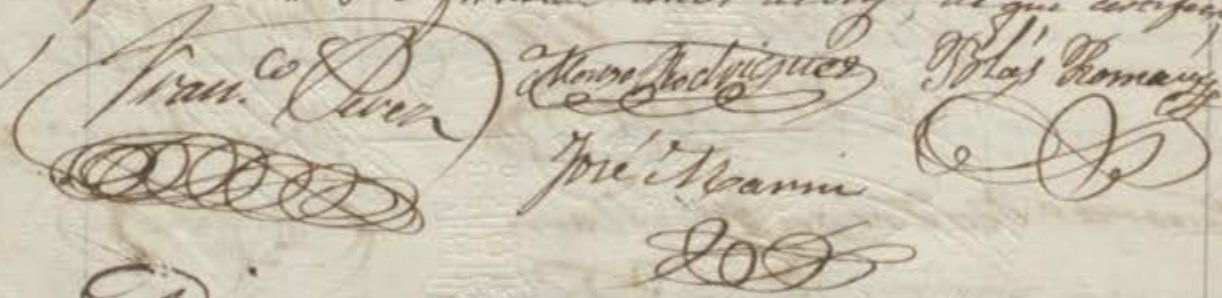 de que certifico
Fran.co Perez
Alonso Rodriguez
Blás Roman
José Marin